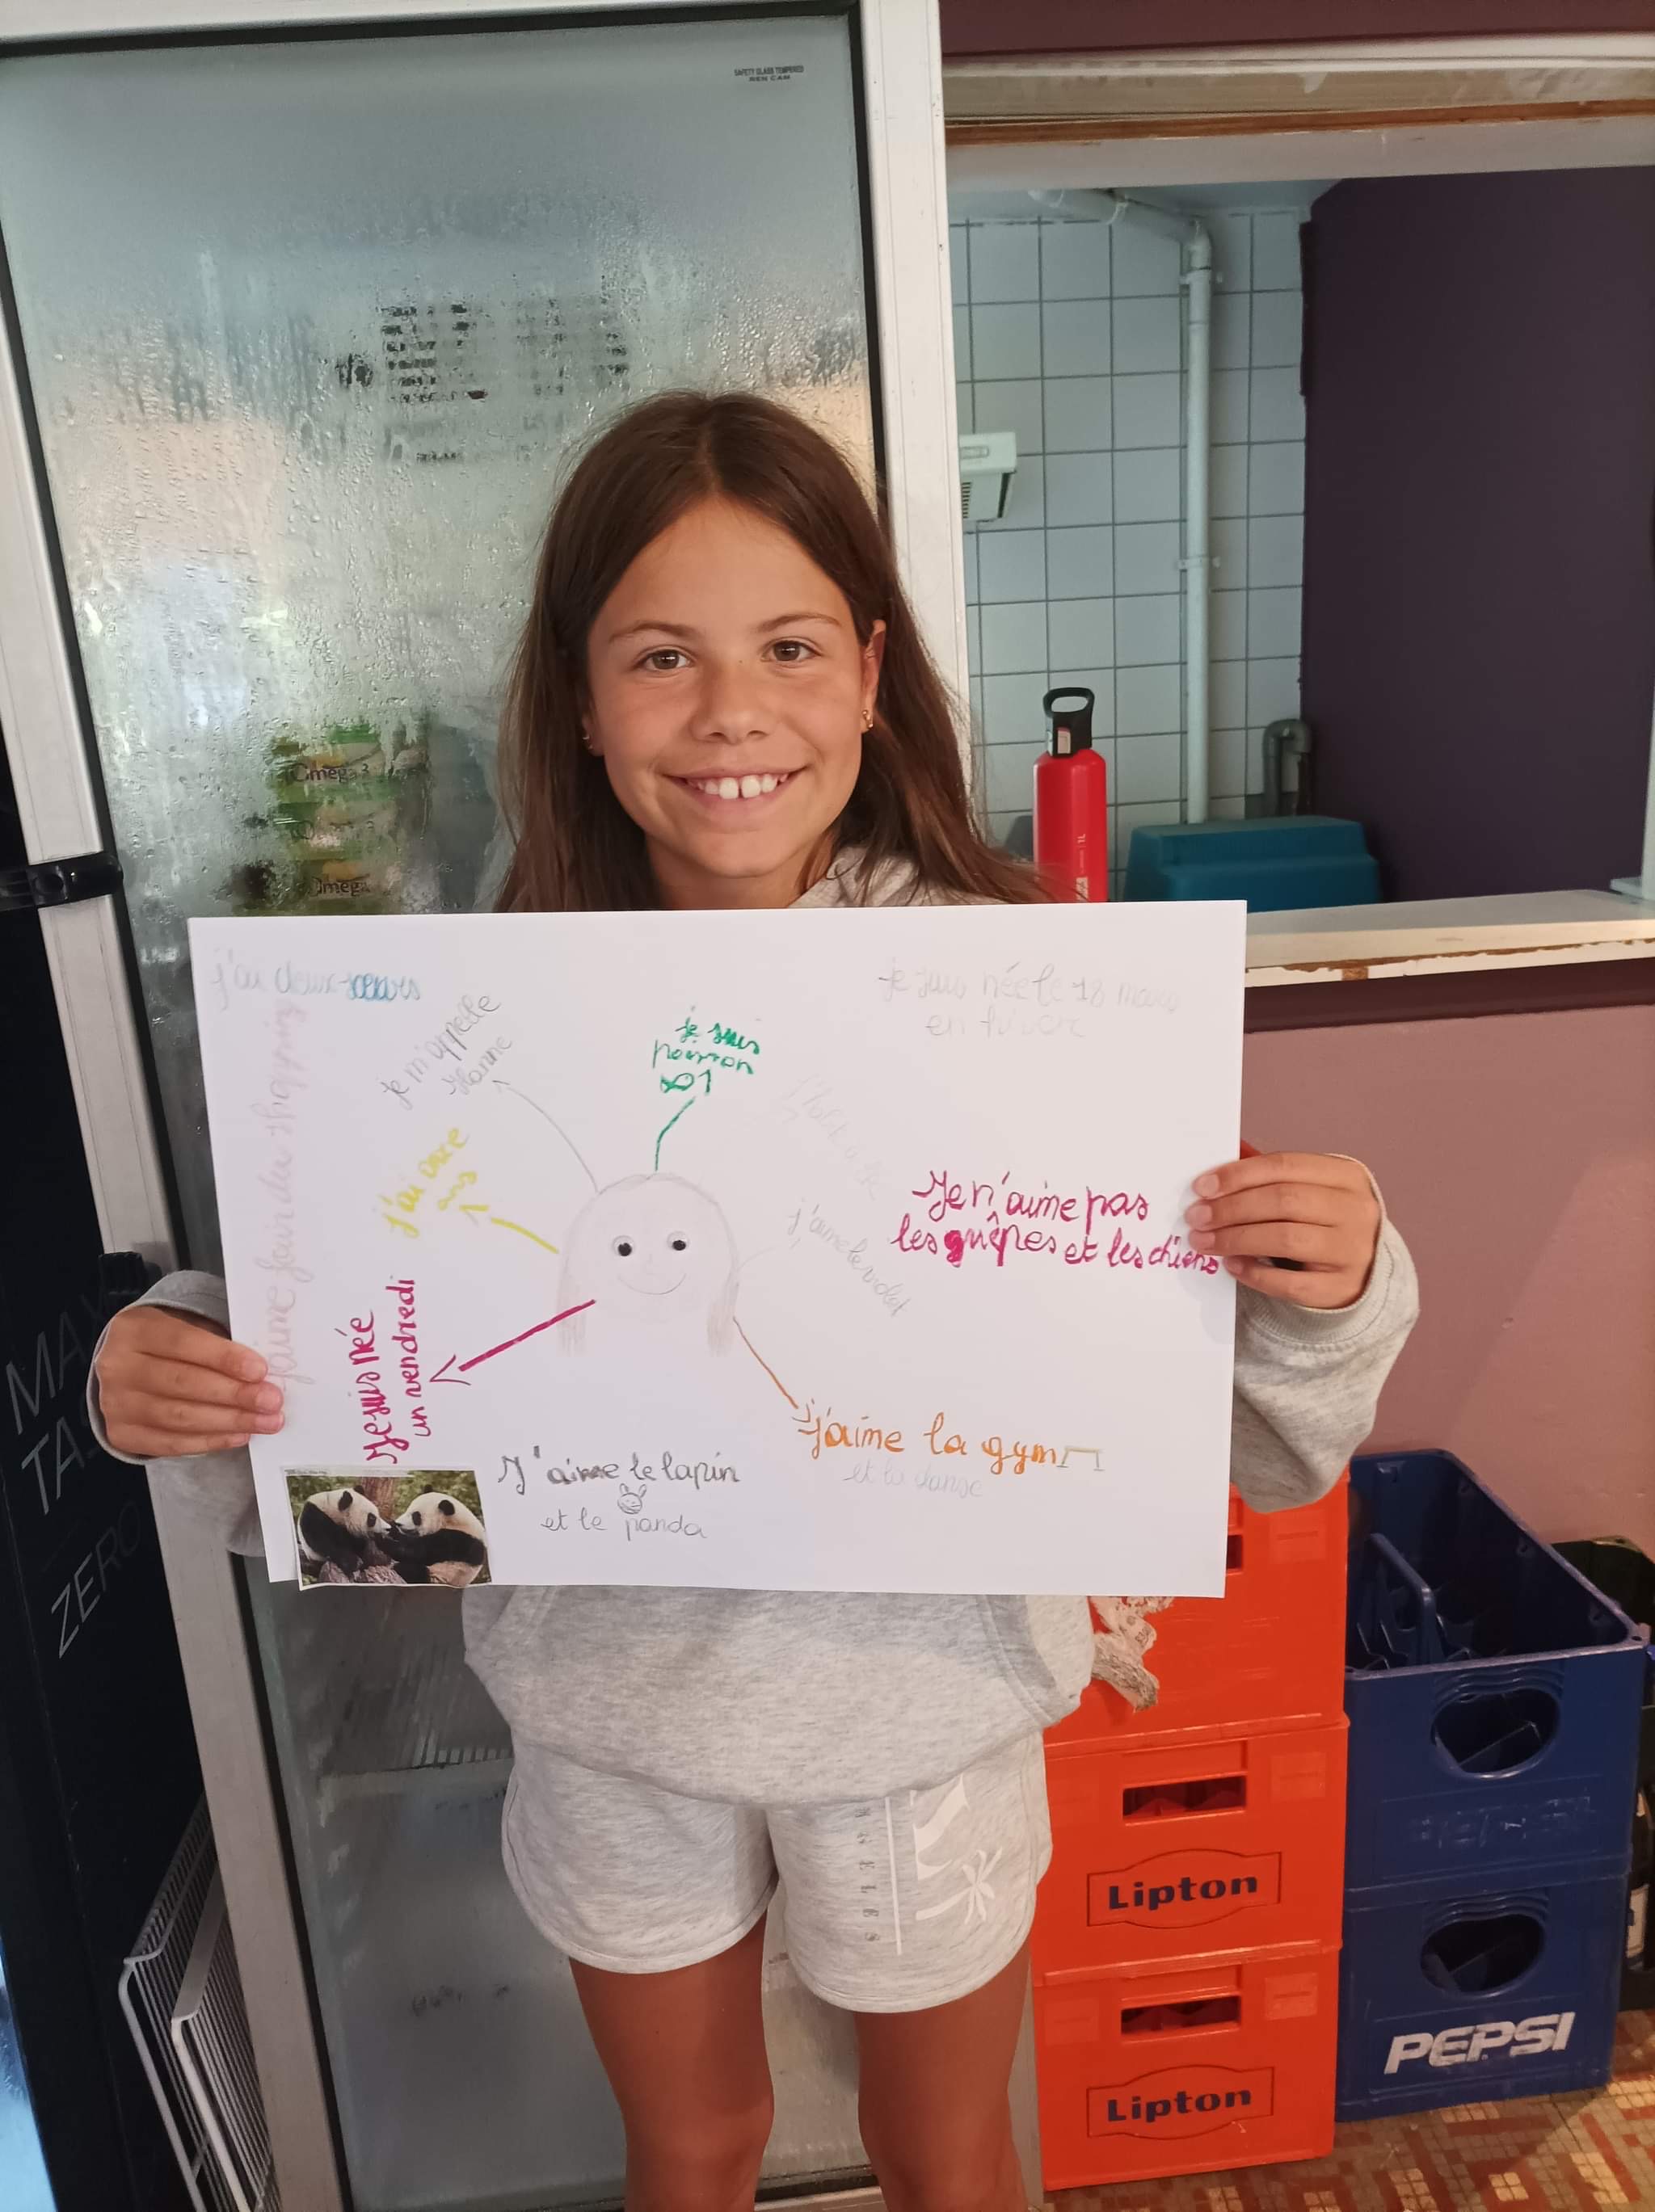 SAFETY GLASS TEMPERED
Omega 3
Omega
j'ai deux soeurs
je suis née le 18 mars
en hiver
je m'appelle
Hanne
je suis
poisson
j'ai onze
ans
j'aime le violet
Je n'aime pas
les guêpes et les chiens
j'aime faire du shopping
Je suis née
un vendredi
j'aime la gym
et la danse
J'aime le lapin
et le panda
MAX
ZERO
Lipton
Lipton
PEPSI